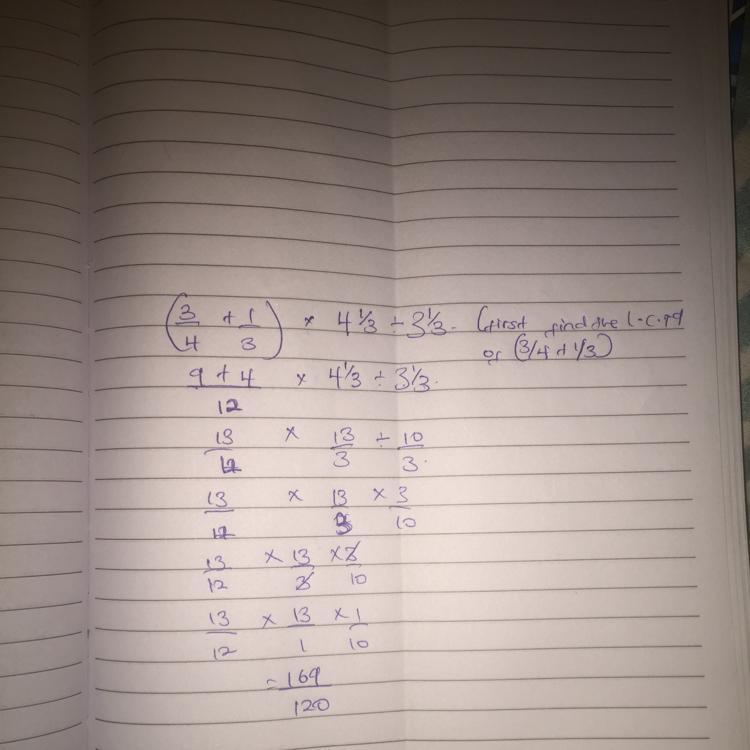 (3/4 + 1/3) × 4 1/3 ÷ 3 1/3. (first find the L.C.M
of (3/4 + 1/3)
9 + 4 / 12 × 4 1/3 ÷ 3 1/3.
13/12 × 13/3 ÷ 10/3.
13/12 × 13/3 × 3/10
13/12 × 13/3 × 3/10
13/12 × 13/1 × 1/10
= 169/120